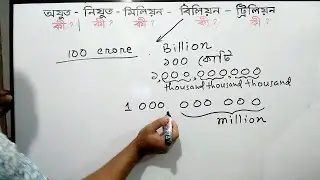 অযুত - নিযুত - মিলিয়ন - বিলিয়ন - ট্রিলিয়ন
কী ? কী ? কী ? কী ? কী ?
100 crore : Billion
১০০ কোটি
১,০০০,০০০০০০
thousand thousand thousand
1 000 000 000
million